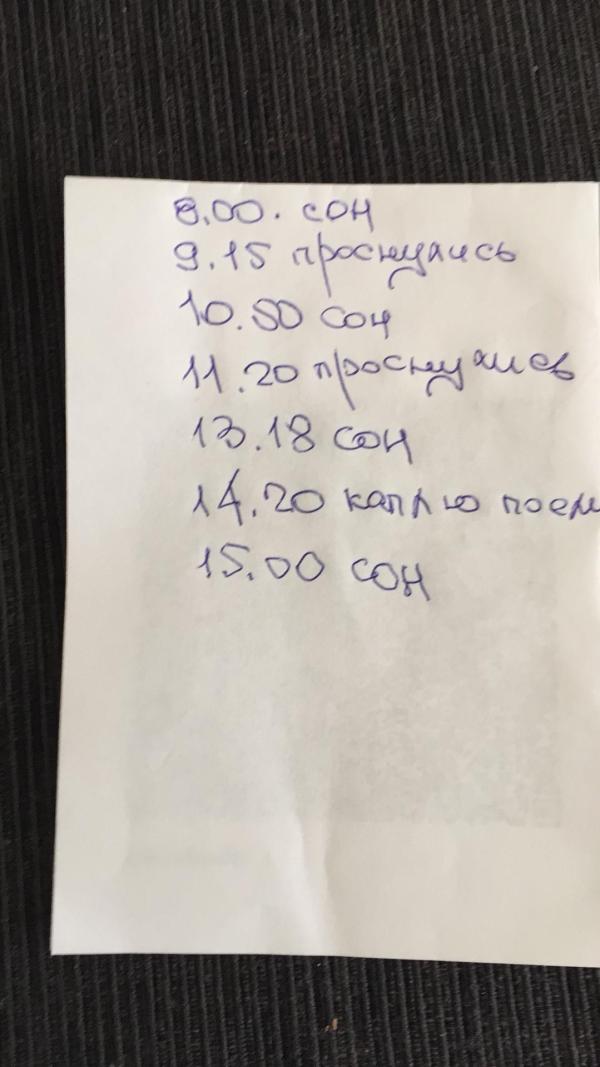 8.00. сон
9.15 проснулись
10.50 сон
11.20 проснулись
13.18 сон
14.20 каплю
15.00 сон